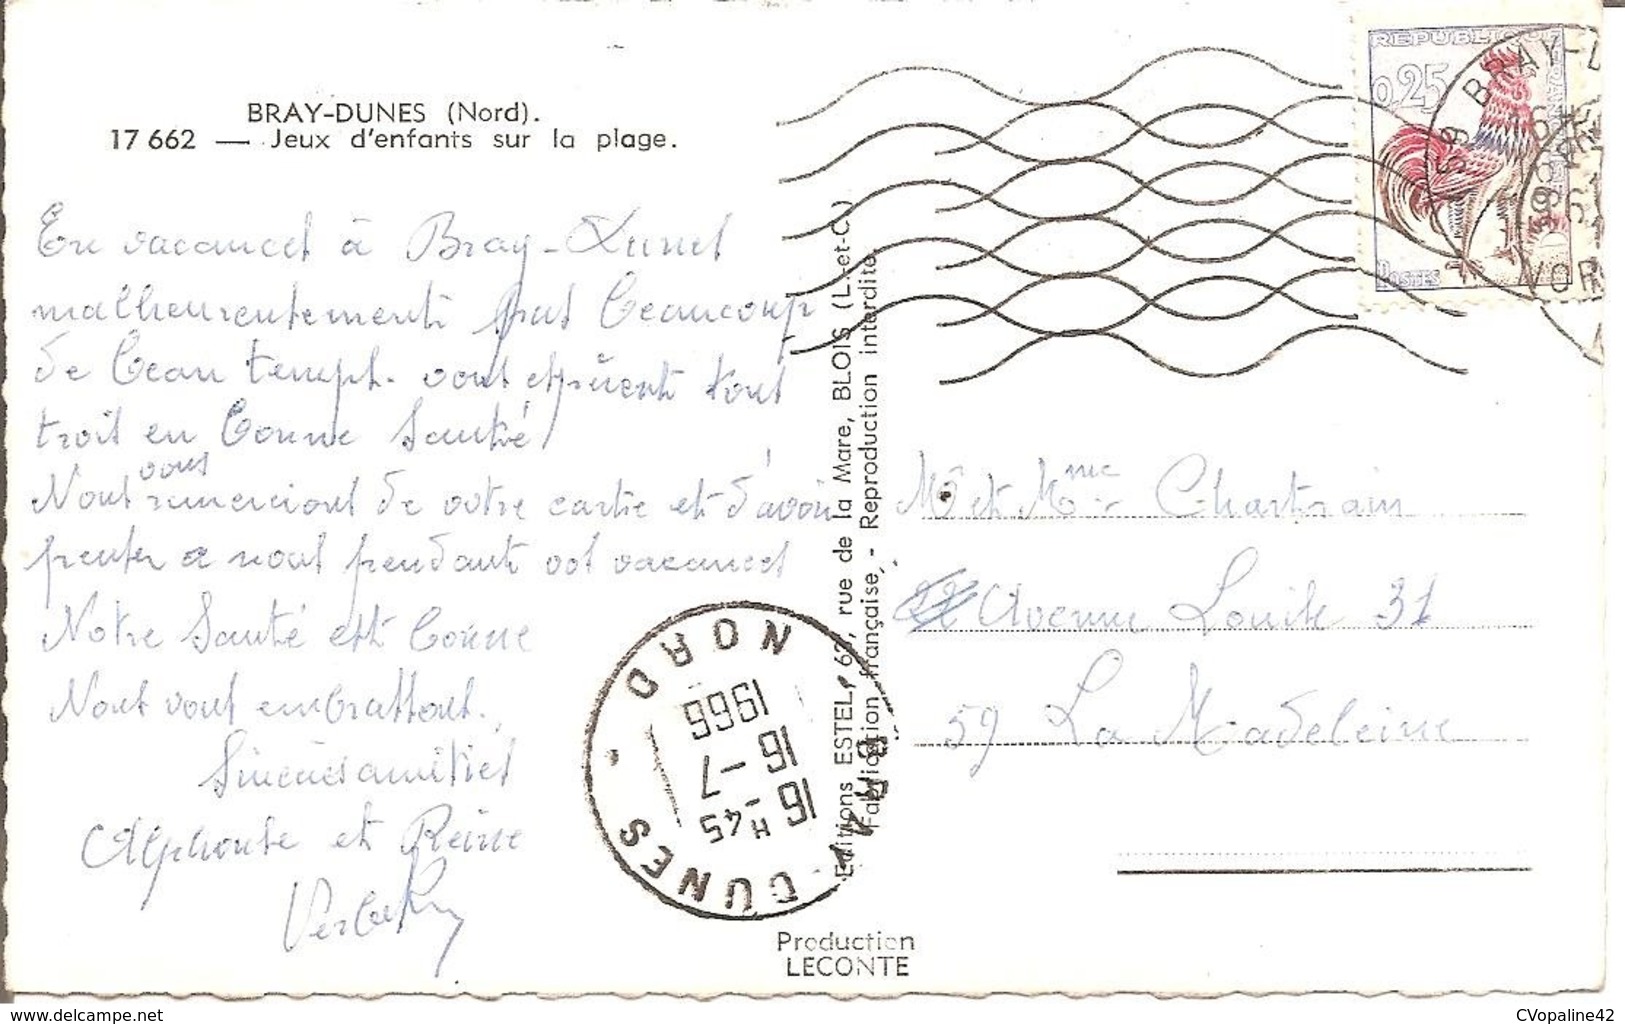 BRAY-DUNES (Nord).
17 662 — Jeux d'enfants sur la plage.
En vacances à Bray-Dunes
malheureusement pas beaucoup
de beau temps. vous etprients tous
trois en bonne santé
vous
Nous remercions de votre carte et d'avoir
penser a nous pendants vos vacances
Notre Santé est bonne
Nous vous embrassons.
Sincères amitiés
Alphonse et Reine
Editions ESTEL, 63, rue de la Mare, BLOIS (L.-et-C.)
Fabrication française. - Reproduction interdite
Production
LECONTE
BRAY-DUNES
NORD
16 H 45
16 -7
1966
REPUBLIQUE FRANÇAISE
0,25
POSTES
59 BRAY-D
Mr et Mme Chartrain
Avenue Louise 31
59 La Madeleine
CVopaline42